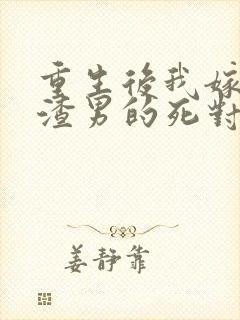 重生後我嫁
渣男的死對
姜靜靠